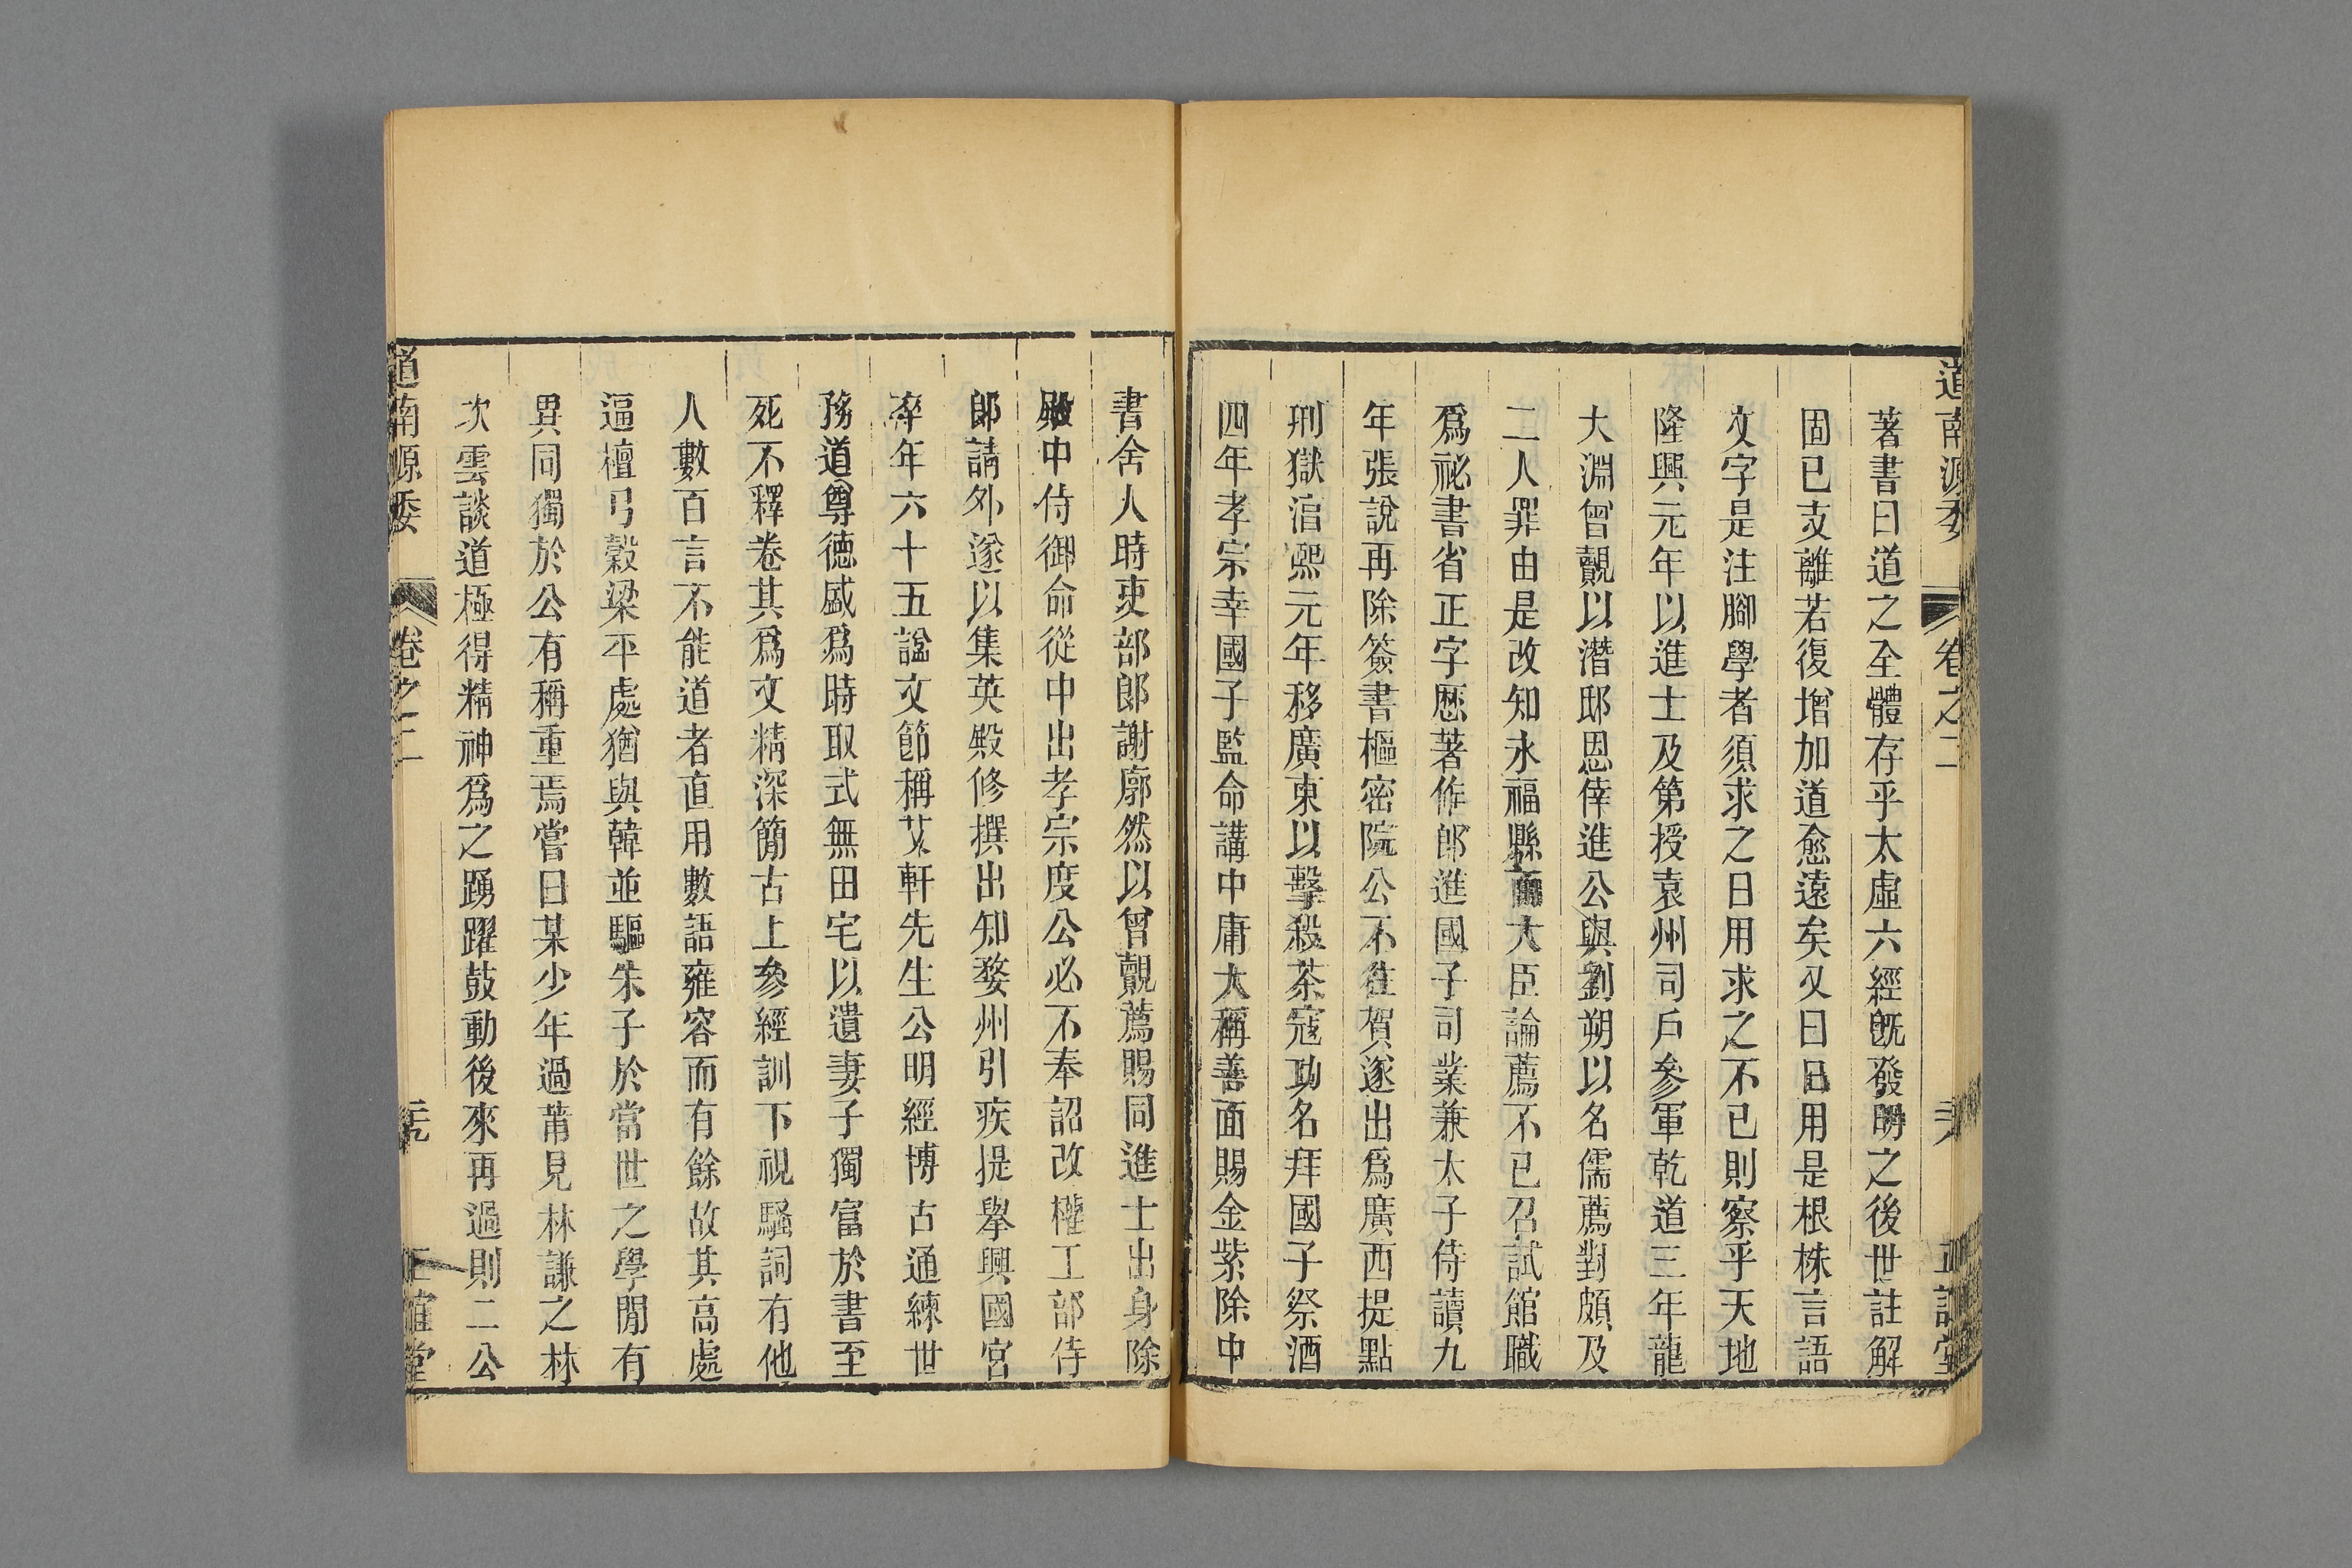 道南源委 卷之二
著書曰道之全體存乎太虛六經旣發明之後世註解
固已支離若復增加道愈遠矣又曰日用是根株言語
文字是注腳學者須求之日用求之不已則察乎天地
隆興元年以進士及第授袁州司戶參軍乾道三年龍
大淵曾覿以潛邸恩倖進公與劉朔以名儒薦對頗及
二人罪由是改知永福縣而大臣論薦不已召試館職
爲祕書省正字歷著作郎進國子司業兼太子侍讀九
年張說再除簽書樞密院公不往賀遂出爲廣西提點
刑獄淳熙元年移廣東以擊殺茶寇功名拜國子祭酒
四年孝宗幸國子監命講中庸大稱善面賜金紫除中
書舍人時吏部郎謝廓然以曾覿薦賜同進士出身除
殿中侍御命從中出孝宗度公必不奉詔改權工部侍
郎請外遂以集英殿修撰出知婺州引疾提舉興國宮
卒年六十五諡文節稱艾軒先生公明經博古通練世
務道尊德盛爲時取式無田宅以遺妻子獨富於書至
死不釋卷其爲文精深簡古上參經訓下視騷詞有他
人數百言不能道者直用數語雍容而有餘故其高處
逼檀弓穀梁平處猶與韓並驅朱子於當世之學閒有
異同獨於公有稱重焉嘗曰某少年過莆見林謙之林
次雲談道極得精神爲之踴躍鼓動後來再過則二公
道南源委 卷之二 正誼堂